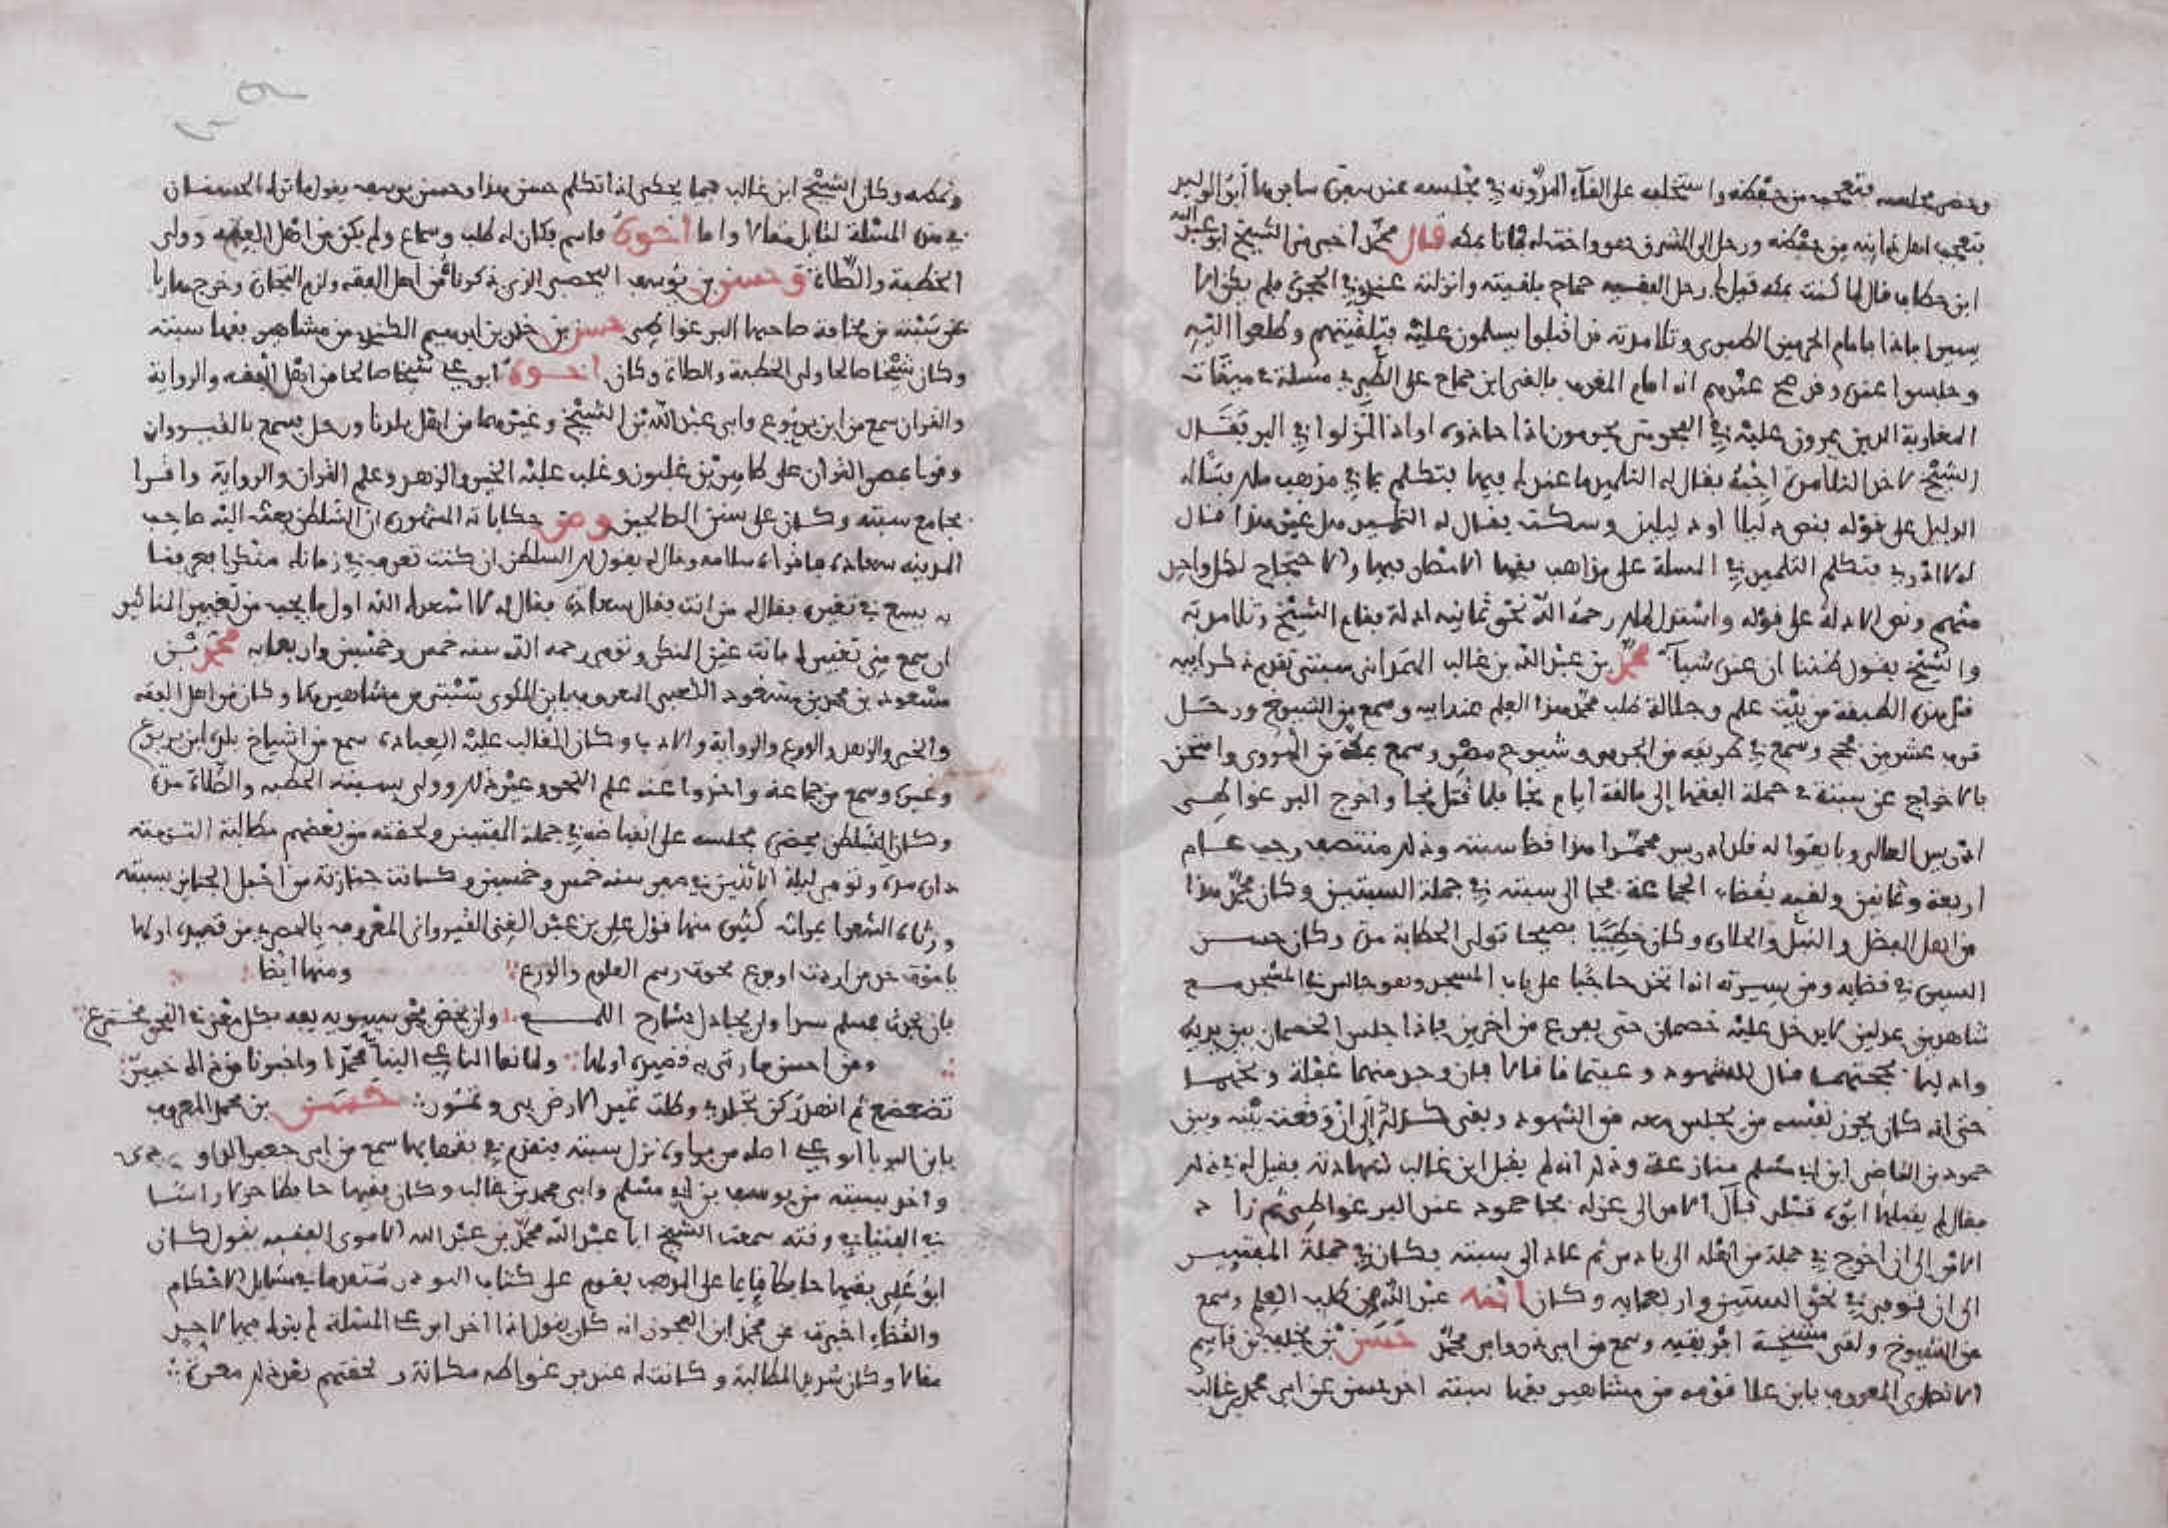 وحضر مجلسه فتعجب من حفظه واستخلفه على القاء المدونة في مجلسه عند سفرة سافرها أبو الوليد
فتعجب اهل غرابته من حفظه ورحل الى المشرق فهو واخته له ماتا بمكة قال محمد أخبرني الشيخ ابو عبد الله
ابن خطاب قال لما كنت بمكة قيل لي رحل الفقيه حجاج فلقيته وانزلته عندي في الحجرة فلم يكن الا
يسيرا فاذا بامام الحرمين الطبري وتلامذته قد اقبلوا يسلمون عليه فتلقيتهم وطلعوا اليه
وجلسوا عنده وقد صح عندهم انه امام المغرب فالقى ابن حجاج على الطبري مسئلة في ميقات
المغاربة الذين يمرون عليه في البحر متى يحرمون اذا حاذوه او اذا انزلوا في البر فقال
الشيخ لاحد التلامذة اجبه فقال له التلميذ ما عندك فيها فتكلم بما في مذهب ملك بساله
الدليل على قوله فنص دليلا او دليلين وسكت فقال له التلميذ هل غير هذا قال
له لا ادري فتكلم التلميذ في المسلة على مذاهب فقهاء الامصار فيها والاحتجاج لكل واحد
منهم ونص الادلة على قوله واستدل لملك رحمه الله نحو ثمانية ادلة فقام الشيخ وتلامذته
والشيخ يقول ظننا ان عنده شيا محمد بن عبد الله بن غالب الهمداني سبتي تقدم ذكر ابيه
قبل هذه الطبقة من بيت علم وجلالة طلب محمد هذا العلم عند ابيه وسمع من الشيوخ ورحل
قرب عشرين فحج وسمع في طريقه من الحوفي وشيوخ مصر وسمع بمكة من الهروي وامتحن
بالاخراج عن سبتة في جملة الفقهاء إلى مالقة أيام نجا فلما قتل نجا واخرج البرغواطي
ادريس العالي وبايعوا له قلد ادريس محمدا هذا قضا سبتة وذلك منتصف رجب عام
اربعة وثمانين ولقبه بقضاء الجماعة فجا الى سبتة في جملة السبتيين وكان محمد هذا
من اهل الفضل والنبل والجلالة وكان خطيبا فصيحا تولى الخطابة مدة وكان حسن
السيرة في قضايه ومن سيرته انه اتخذ حاجبا على باب المسجد وهو جالس في المسجد مع
شاهدين عدلين لا يدخل عليه خصمان حتى يفرغ من اخرين فاذا جلس الخصمان بين يديه
وادليا بحجتهما قال للشهود وعيتما ما قالا فان وجد منهما غفلة ونحوها
حتى انه كان يجوز لنفسه من يجلس معه من الشهود وبقي كذلك إلى ان وقعت بينه وبين
حمود بن القاضي ابن ابي مسلم منازعة وذلك انه لم يقبل ابن غالب شهادته فقيل له في ذلك
فقال لم يقبلها ابوه قبلي فآل الامر الى عزله فجا حمود عند البرغواطي ثم زا د
الامر إلى ان اخرج في جملة من اهله الى باديس ثم عاد الى سبتة فكان في جملة المفتيين
الى ان توفي في نحو الستين واربعماية وكان ابنه عبد الله ممن طلب العلم وسمع
من الشيوخ ولقي مشيخة افريقية وسمع من ابي ذر وابي محمد حسن بن خلف بن قاسم
الانصاري المعروف بابن علا قومه من مشاهير فقها سبتة اخذ حسن عن ابي محمد بن غالب
ونمطه وكان الشيخ ابن غالب فيما يحكى اذا تكلم حسن هذا وحسن بن يوسف يقول ما ترك الحسنان
في هذه المسئلة لقايل مقالا واما اخوه قاسم فكان له طلب وسماع ولم يكن من اهل الفقه وولي
الخطبة والصلاة وحسن بن يوسف اليحصبي الذي ذكرناه من اهل الفقه ولزم التجارة وخرج هاربا
عن سبتة من مخافة صاحبها البرغواطي حسن بن خلدون بن ابراهيم الكندي من مشاهير فقها سبتة
وكان شيخا صالحا ولي الخطبة والصلاة وكان اخوه ابو علي شيخا صالحا من اهل الفقه والرواية
والقران سمع من ابن يربوع وابي عبد الله بن الشيخ وغيرهما من اهل بلدنا ورحل فسمع بالقيروان
وقرا بمصر القران على طاهر بن غلبون وغلب عليه الخير والزهد وعلم القران والرواية واقرا
بجامع سبتة وكان على سنن الصالحين ومن حكاياته المشهورة ان السلطان بعث اليه صاحب
المدينة سعادة فاقراه سلامه وقال له يقول لك السلطان ان كنت تعرف في زمانك منكرا فعرفنا
به نسع في تغييره فقال له من انت فقال سعادة فقال له لا اسعدك الله اول ما يجب من تغيير المناكر
ان سمع مني تغييرك فانت عين المنكر وتوفي رحمه الله سنة خمس وخمسين واربعماية محمد بن
مسعود بن محمد بن مسعود اللخمي المعروف بابن الملوي سبتي من مشاهيرها وكان من اهل الفقه
والخير والزهد والورع والرواية والادب وكان الغالب عليه العبادة سمع من اشياخ بلده ابن يربوع
وغيره وسمع من جماعة واخذوا عنه علم النحو وغير ذلك وولي بسبتة الخطبة والصلاة مدة
وكان السلطان يحضر مجلسه على انقباضه في جملة المفتيين ولحقته من بعضهم مطالبة التزمته
داره مدة وتوفي ليلة الاثنين في صفر سنة خمس وخمسين وكانت جنازته من احفل الجنايز بسبتة
ورثاه الشعرا بمراثي كثيرة منها قول علي بن عبد الغني القيرواني المعروف بالحصري من قصيدة اولها
يا موت خذ من اردت او فدع محوت رسم العلوم والورع ومنها ايضا
فان تحدث فمسلم سردا وان يجادل فشارح اللمع وان يخض نحو سيبويه يفه بكل معنى في النحو مخترع
ومن احسن ما رثي به قصيدة اولها ولما نعا الناعي الينا محمدا واخبرنا من
تضعضع ثم انهد ركن تجلدي وظلت تميد الارض بي وتمور حسن بن محمد المعروف
بابن البريا ابو علي اصله من نزل سبتة فتقدم في فقهايها سمع من ابي جعفر الداودي
واخذ بسبتة من يوسف بن ابي مسلم وابي محمد بن غالب وكان فقيها حافظا حركا راسا
في الفتيا في وقته سمعت الشيخ ابا عبد الله محمد بن عبد الله الاموي الفقيه يقول كان
ابو علي فقيها حافظا قايما على المذهب يقوم على كتاب مسايل الاحكام
والقضاء اخبرت عن محمد ابن العجوز انه كان يقول اذا اخذ ابو علي المسئلة لم يترك فيها لاحد
مقالا وكان شديد المطالبة وكانت له عند بن غواطه مكانة ولحقتهم بعد ذلك معرة